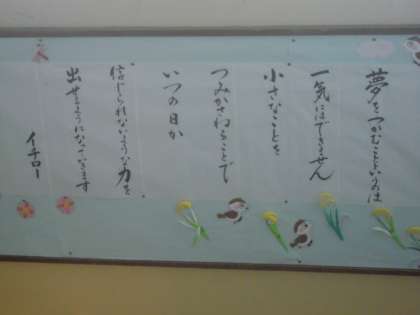 夢をつかむことというのは
一気にはできません
小さなことを
つみかさねることで
いつの日か
信じられないような力を
出せるようになっていきます
イチロー